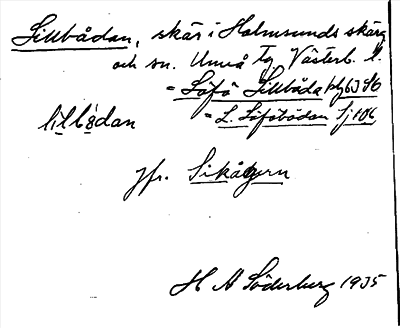 Sillbådan, skär i Holmsunds skärg
och sn. Umeå tg. Västerb. l.
= Löfö Sillbåda
lil̀bådan = L. Löföbådan Sj 106
jfr. Sikå
H A Söderberg 1935